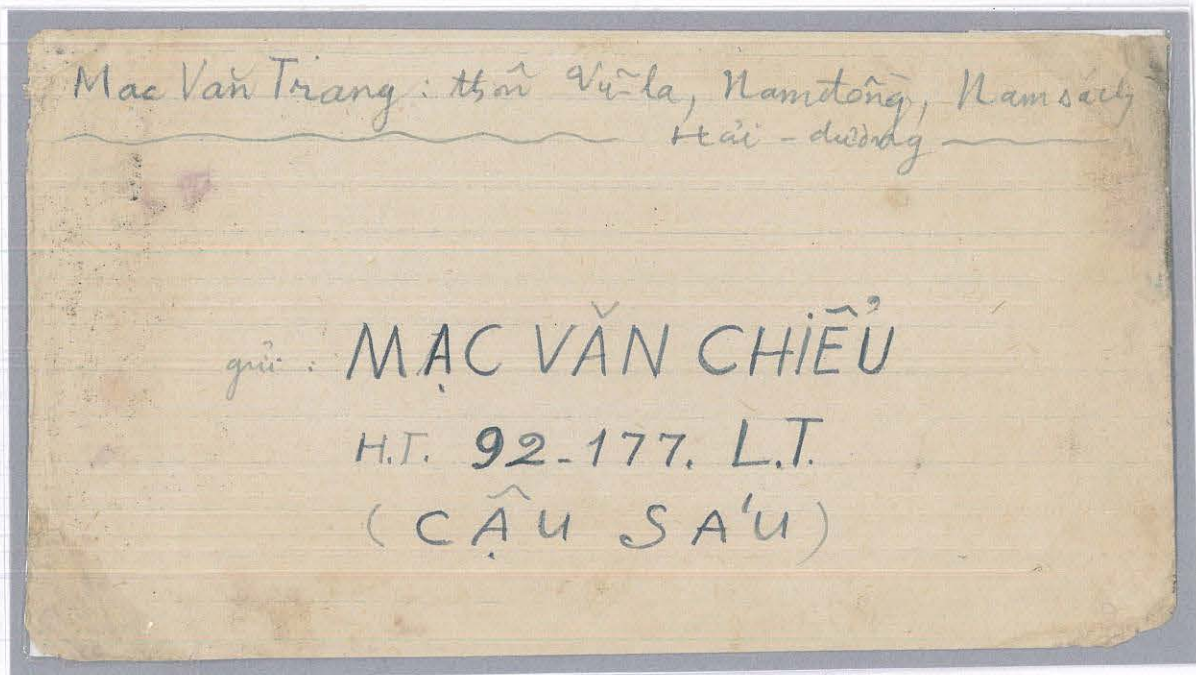 Mạc Văn Trang: thôn Vũ-la, Nam đồng, Nam sách
Hải - dương
gửi: MẠC VĂN CHIỂU
H.T. 92-177. L.T.
(CẬU SÁU)